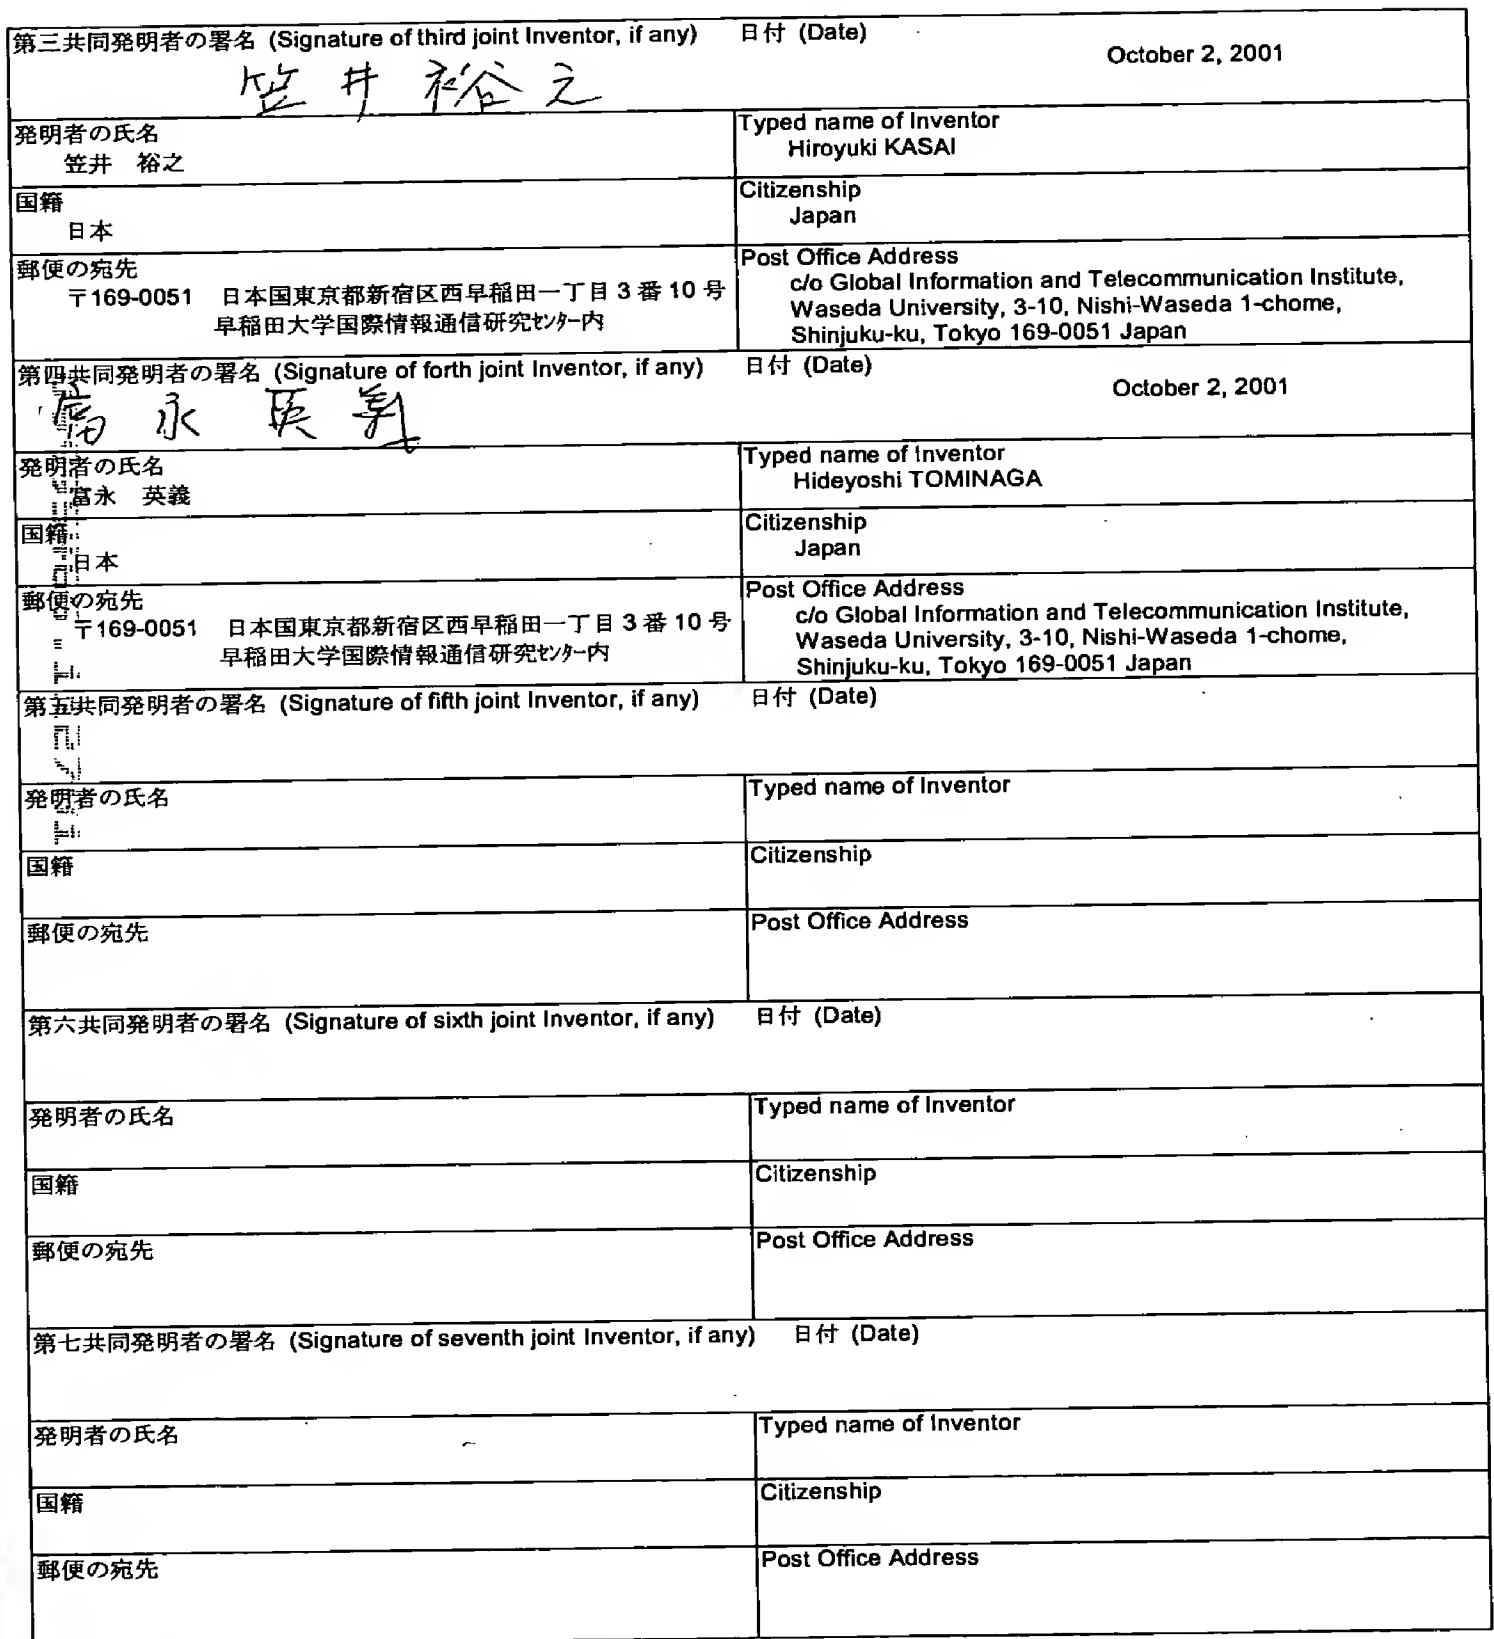 第三共同発明者の署名 (Signature of third joint Inventor, if any) 日付 (Date)
October 2, 2001
笠井裕之
発明者の氏名
笠井 裕之
Typed name of Inventor
Hiroyuki KASAI
国籍
日本
Citizenship
Japan
郵便の宛先
〒169-0051 日本国東京都新宿区西早稲田一丁目3番10号
早稲田大学国際情報通信研究センター内
Post Office Address
c/o Global Information and Telecommunication Institute,
Waseda University, 3-10, Nishi-Waseda 1-chome,
Shinjuku-ku, Tokyo 169-0051 Japan
第四共同発明者の署名 (Signature of forth joint Inventor, if any) 日付 (Date)
October 2, 2001
富永英義
発明者の氏名
富永 英義
Typed name of Inventor
Hideyoshi TOMINAGA
国籍
日本
Citizenship
Japan
郵便の宛先
〒169-0051 日本国東京都新宿区西早稲田一丁目3番10号
早稲田大学国際情報通信研究センター内
Post Office Address
c/o Global Information and Telecommunication Institute,
Waseda University, 3-10, Nishi-Waseda 1-chome,
Shinjuku-ku, Tokyo 169-0051 Japan
第五共同発明者の署名 (Signature of fifth joint Inventor, if any) 日付 (Date)
発明者の氏名
Typed name of Inventor
国籍
Citizenship
郵便の宛先
Post Office Address
第六共同発明者の署名 (Signature of sixth joint Inventor, if any) 日付 (Date)
発明者の氏名
Typed name of Inventor
国籍
Citizenship
郵便の宛先
Post Office Address
第七共同発明者の署名 (Signature of seventh joint Inventor, if any) 日付 (Date)
発明者の氏名
Typed name of Inventor
国籍
Citizenship
郵便の宛先
Post Office Address